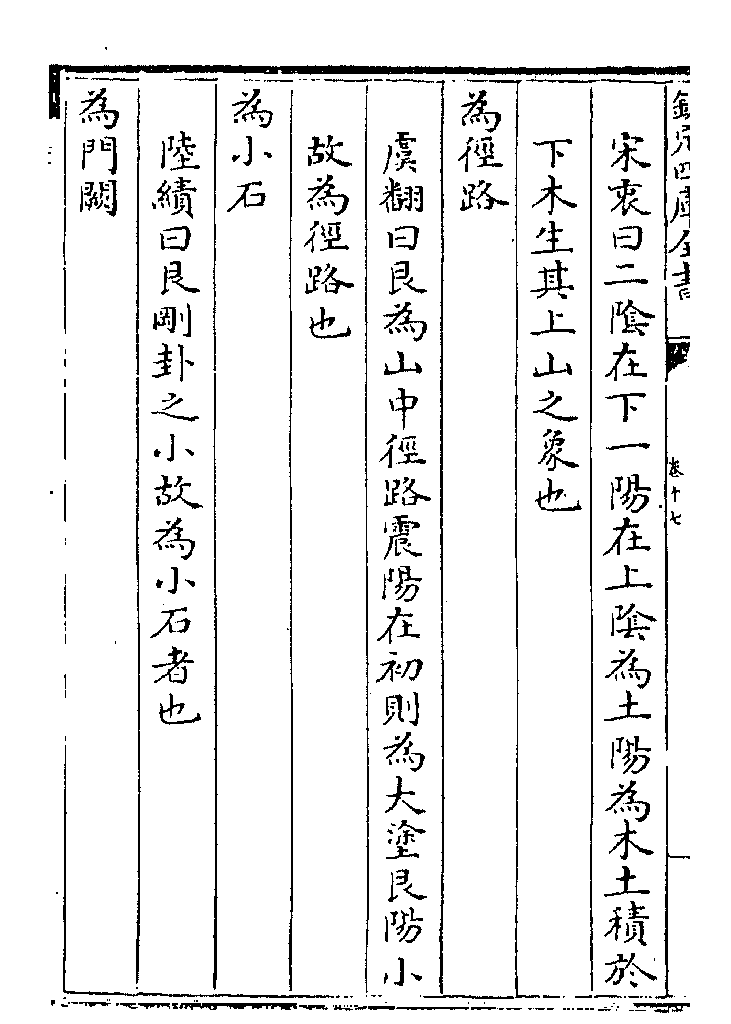 欽定四庫全書
卷十七
宋衷曰二隂在下一陽在上隂為土陽為木土積於
下木生其上山之象也
為徑路
虞翻曰艮為山中徑路震陽在初則為大塗艮陽小
故為徑路也
為小石
陸績曰艮剛卦之小故為小石者也
為門闕